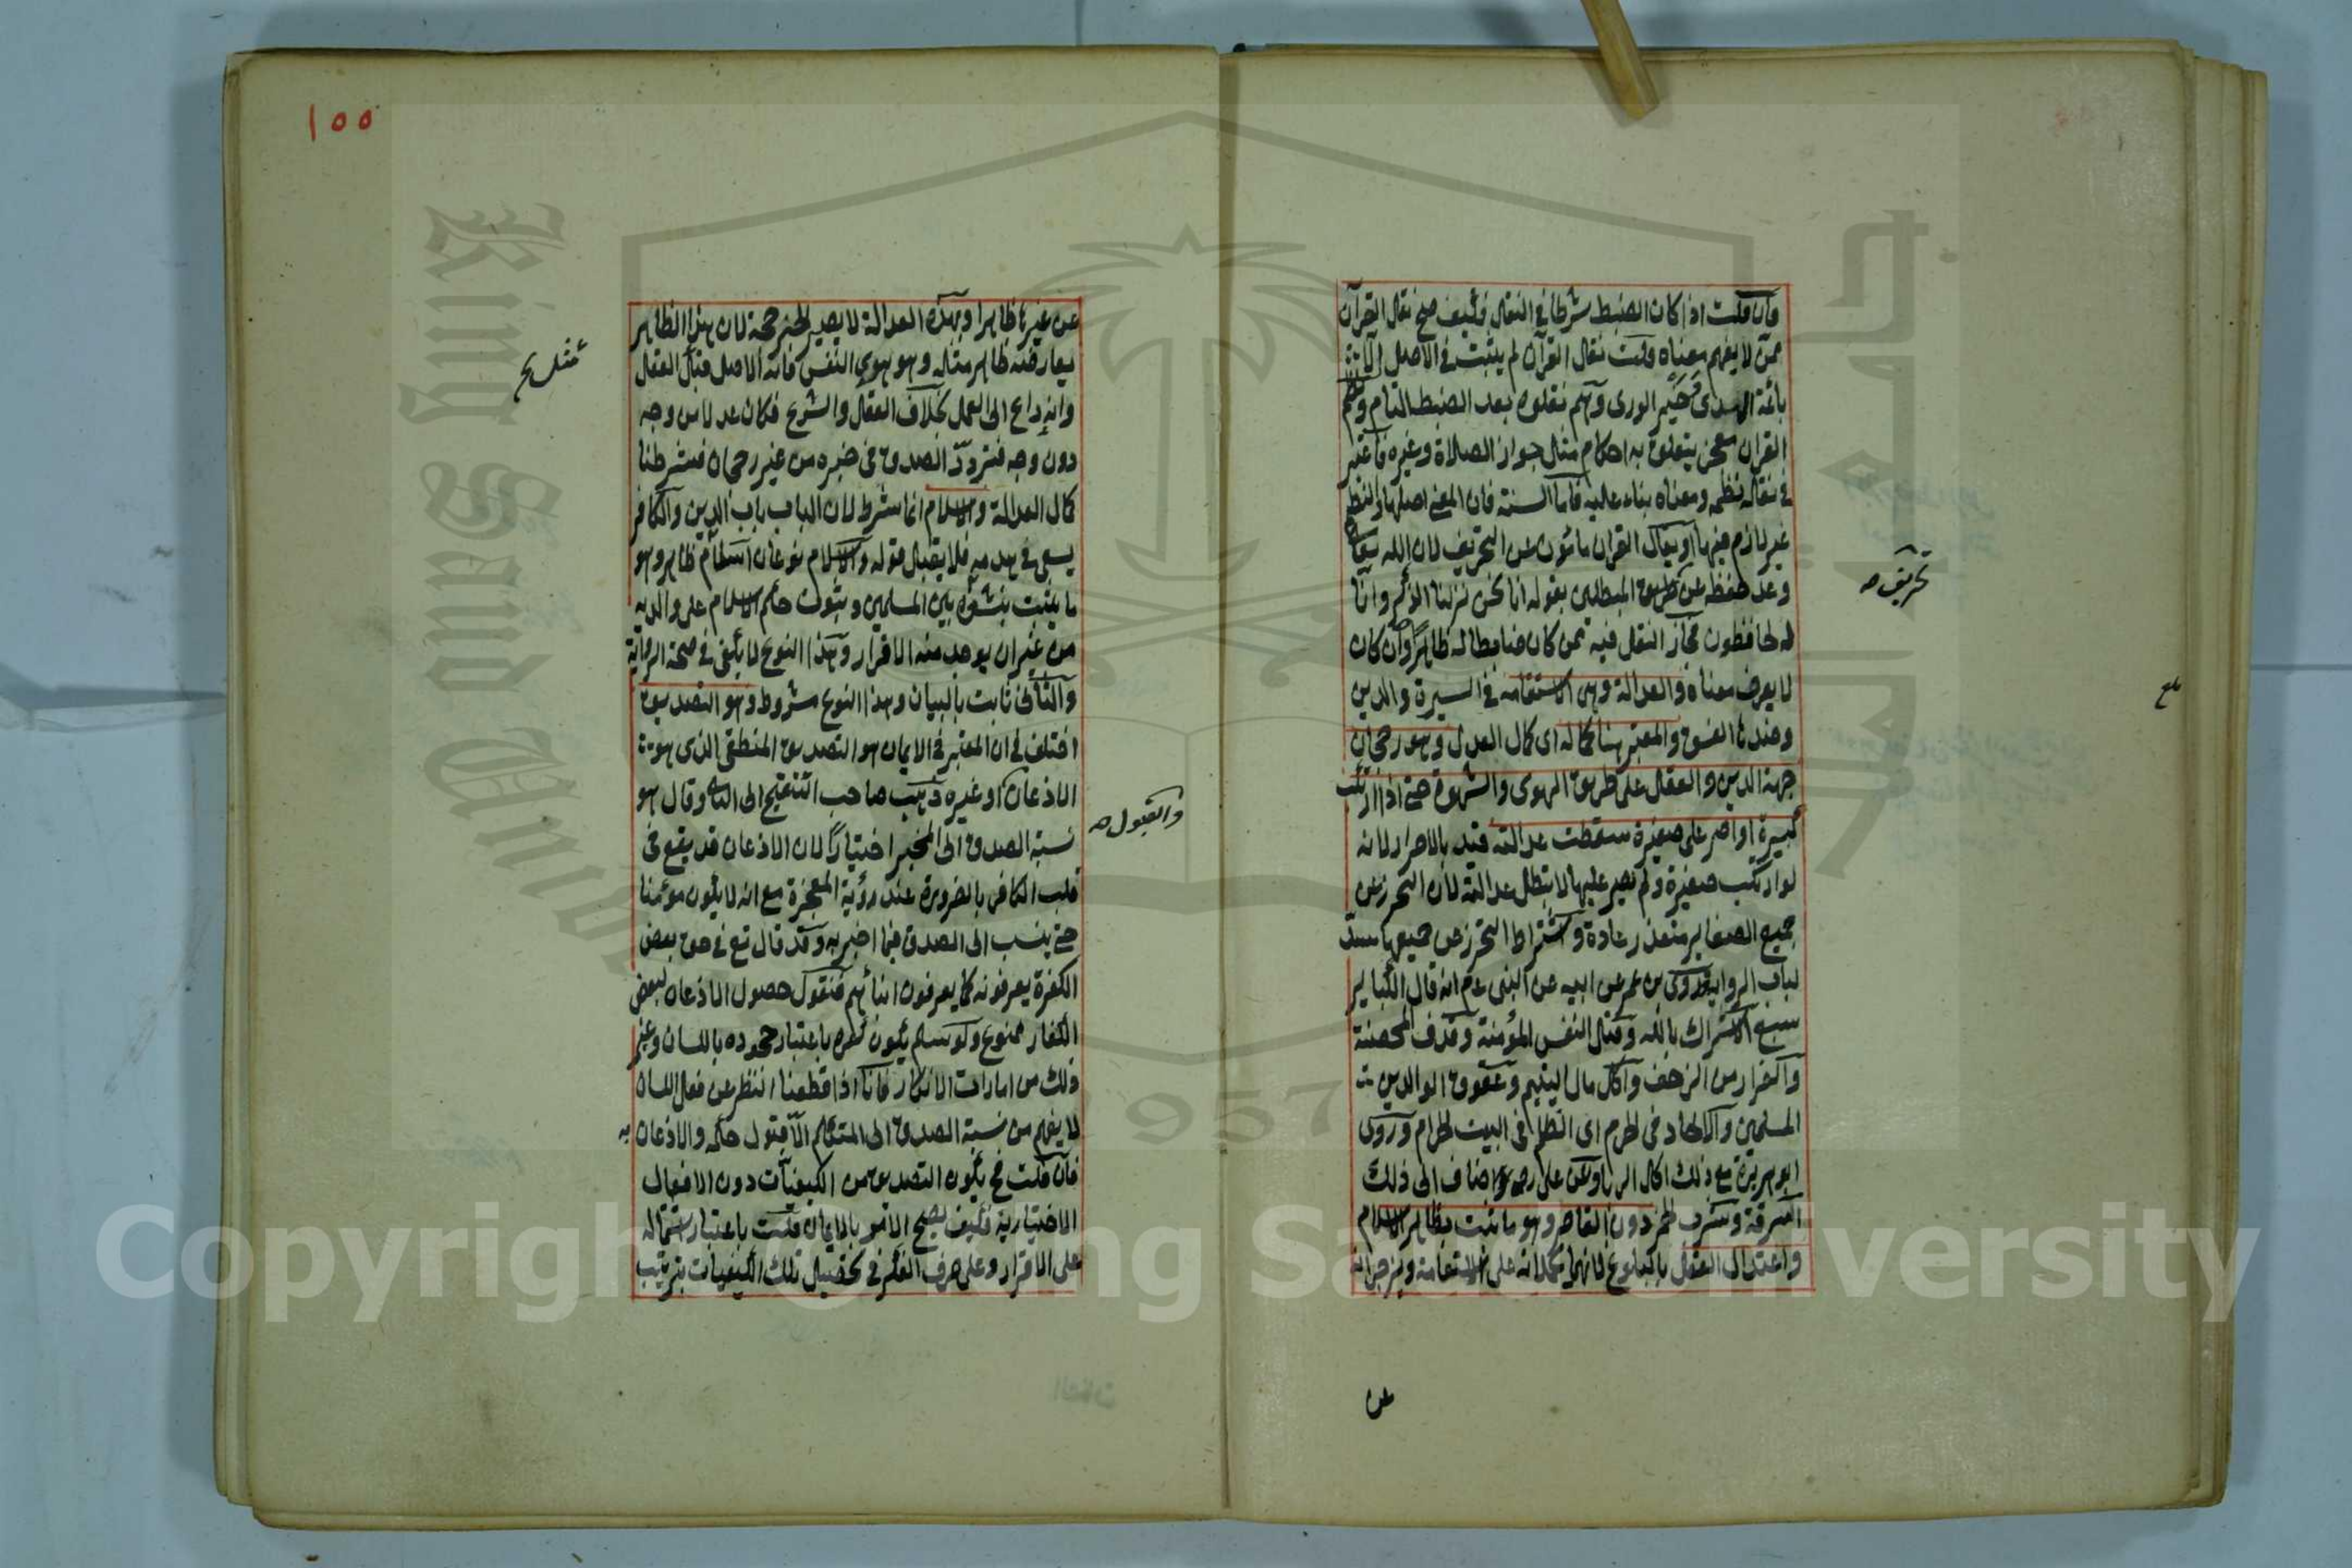 فان قلت اذا كان الضبط شرطا في النقل فكيف صح نقل القرآن
ممن لا يفهم معناه قلت نقل القرآن لم يثبت في الاصل الا
بائمة الهدى خير الورى وانهم نقلوه بعد الضبط التام ونظم
القران معجز يتعلق به احكام مثل جواز الصلاة وغيره فاعتبر
في نقله نظمه ومعناه بناء عليه فاما السنة فان المعنى اصلها والنظم
غير لازم فيها او يقال القران مأمون عن التحريف لان الله تعالى
وعد حفظه عن طريق المبطلين بقوله انا نحن نزلنا الذكر وانا
له لحافظون فجاز النقل فيه ممن كان ضابطا له ظاهرا وان كان
لا يعرف معناه والعدالة وهي الاستقامة في السيرة والدين
وضدها الفسق والمعتبر هنا كماله اى كمال العدل وهو رجحان
جهة الدين والعقل على طريق الهوى والشهوة حتى اذا ارتكب
كبيرة او اصر على صغيرة سقطت عدالته قيد بالاصرار لانه
لو ارتكب صغيرة ولم يصر عليها لا يبطل عدالته لان التحرز عن
جميع الصغاير متعذر عادة واشتراط التحرز عن جميعها سد
لباب الرواية وروى بن عمر عن ابيه عن النبى عم انه قال الكباير
سبع الاشراك بالله وقتل النفس المؤمنة وقذف المحصنة
والفرار من الزحف واكل مال اليتيم وعقوق الوالدين
المسلمين والالحاد في الحرم اى الظلم في البيت الحرام وروى
ابو هريرة مع ذلك اكل الربا وعن على رضه اضاف الى ذلك
السرقة وشرب الخمر دون القاصر وهو ما ثبت بظاهر الاسلام
واعتدال العقل بالبلوغ لانهما يحملانه على الاستقامة ويزجرانه
تحريف صح
عن
١٥٥
عن غيرها ظاهرا وبهذه العدالة لا يصير الخبر حجة لان هذا الظاهر
يعارضه ظاهر مثله وهو هوى النفس فانه الاصل قبل العقل
وانه داع الى العمل بخلاف العقل والشرع فكان عدلا من وجه
دون وجه فتردد الصدق في خبره من غير رجحان فشرطنا
كمال العدالة والاسلام انما شرط لان الباب باب الدين والكافر
يسعى في هدمه فلا يقبل قوله والاسلام نوعان اسلام ظاهر وهو
ما يثبت بنشؤه بين المسلمين وثبوت حكم الاسلام على والديه
من غير ان يوجد منه الاقرار وهذا النوع لا يكفى في صحة الرواية
والثانى ثابت بالبيان وهذا النوع مشروط وهو التصديق
اختلف في ان المعتبر في الايمان هو التصديق المنطقى الذى هو
الاذعان او غيره ذهب صاحب التنقيح الى الثانى وقال هو
نسبة الصدق الى المخبر اختيارا لان الاذعان قد يقع في
قلب الكافر بالضرورة عند رؤية المعجزة مع انه لا يكون مؤمنا
حتى ينسب الى الصدق فيما اخبر به وقد قال تع في حق بعض
الكفرة يعرفونه كما يعرفون ابنائهم فنقول حصول الاذعان لبعض
الكفار ممنوع ولو سلم يكون كفره باعتبار جحوده باللسان وغير
ذلك من امارات الانكار فانا اذا قطعنا النظر عن فعل اللسان
لا يفهم من نسبة الصدق الى المتكلم الا قبول حكمه والاذعان به
فان قلت فح يكون التصديق من الكيفيات دون الافعال
الاختيارية فكيف يصح الامر بالايمان قلت باعتبار اشتماله
على الاقرار وعلى صرف الفكر في تحصيل تلك الكيفيات بترتيب
والقبول صح